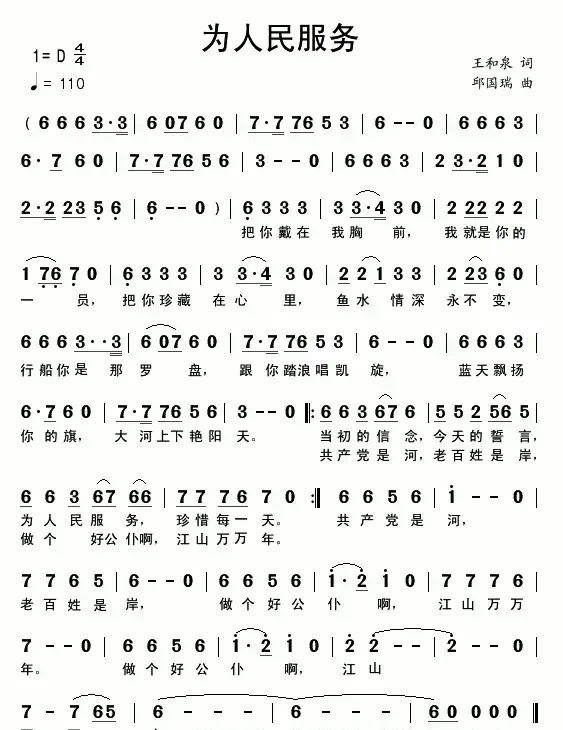 为人民服务
1=D 4/4
♩= 110
王和泉 词
邱国瑞 曲
( 6 6 6 3·3 | 6 07 6 0 | 7·7 76 5 3 | 6 - - 0 | 6 6 6 3 |
6· 7 6 0 | 7·7 76 5 6 | 3 - - 0 | 6 6 6 3 | 2 3·2 1 0 |
2·2 23 5 6 | 6 - - 0 ) | 6 3 3 3 | 3 3·4 3 0 | 2 22 2 2 |
把你戴在 我胸 前, 我就是你的
1 76 7 0 | 6 3 3 3 | 3 3·4 3 0 | 2 2 1 3 3 | 2 23 6 0 |
一 员, 把你珍藏 在心 里, 鱼水 情深 永不变,
6 6 6 3··3 | 6 07 6 0 | 7·7 76 5 3 | 6 - - 0 | 6 6 6 3 |
行船你是 那 罗 盘, 跟你踏浪唱凯 旋, 蓝天飘扬
6·7 6 0 | 7·7 76 5 6 | 3 - - 0 |: 6 6 3 67 6 | 5 5 2 56 5 |
你的旗, 大河上下艳阳 天。 当初的信 念,今天的誓言,
共产党是 河,老百姓是岸,
6 6 3 67 66 | 7 7 7 6 7 0 :| 6 6 5 6 | 1 - - 0 |
为人民服 务, 珍惜每一 天。 共产党是 河,
做个 好公仆啊, 江山万万 年。
7 7 6 5 | 6 - - 0 | 6 6 5 6 | 1·2 1 0 | 7 7 7 6 |
老百姓是 岸, 做个好公 仆 啊, 江山万万
7 - - 0 | 6 6 5 6 | 1·2 1 0 | 2 2 - - | 2 - - 0 |
年。 做个好公 仆 啊, 江山
7 - 7 65 | 6 - - - | 6 - - - | 60 000 ‖